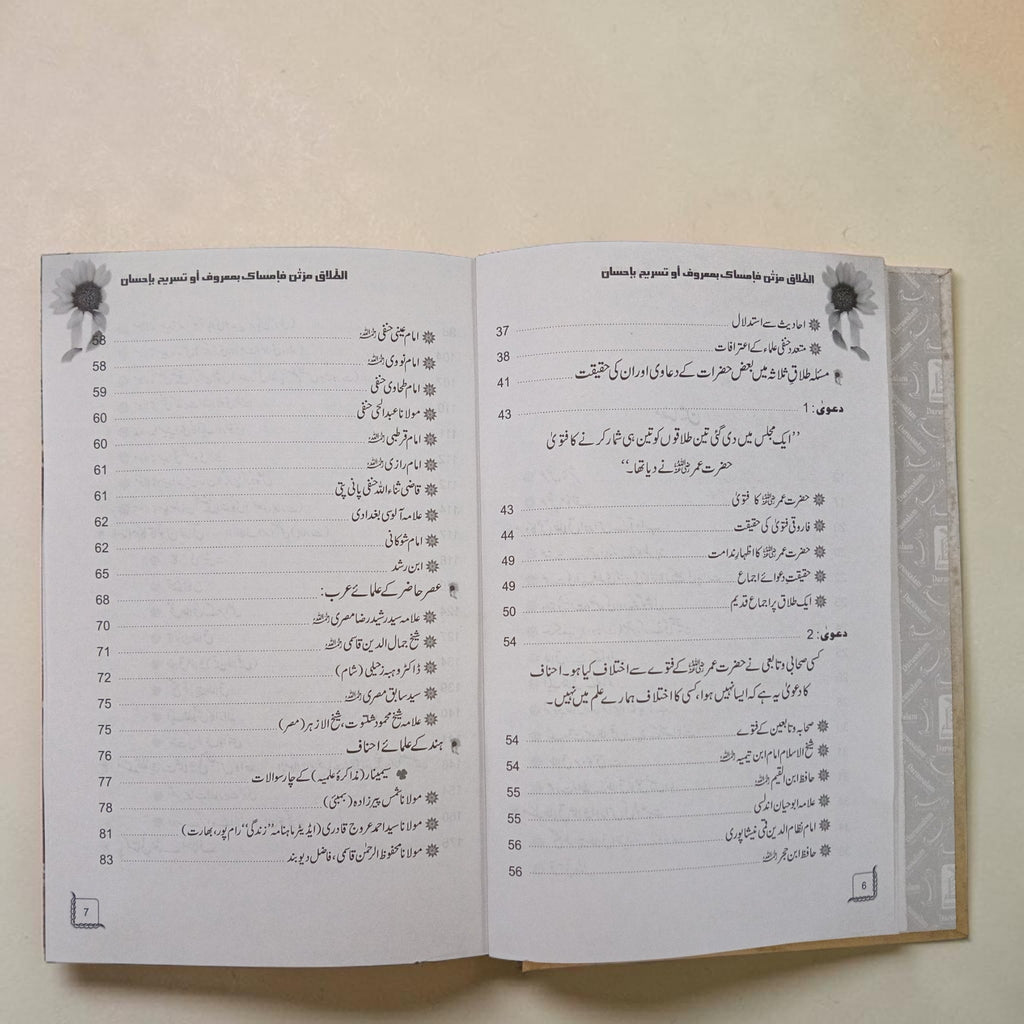 الطّلاق مرّتٰن فإمساك بمعروف أو تسريح بإحسان
احادیث سے استدلال 37
متعدد حنفی علماء کے اعترافات 38
مسئلہ طلاقِ ثلاثہ میں بعض حضرات کے دعاوی اور ان کی حقیقت 41
دعویٰ: 1 43
’’ایک مجلس میں دی گئی تین طلاقوں کو تین ہی شمار کرنے کا فتویٰ
حضرت عمر رضی اللہ عنہ نے دیا تھا۔‘‘
حضرت عمر رضی اللہ عنہ کا فتویٰ 43
فاروقی فتویٰ کی حقیقت 44
حضرت عمر رضی اللہ عنہ کا اظہارِ ندامت 49
حقیقتِ دعوائے اجماع 49
ایک طلاق پر اجماع قدیم 50
دعویٰ: 2 54
کسی صحابی و تابعی نے حضرت عمر رضی اللہ عنہ کے فتوے سے اختلاف کیا ہو۔ احناف
کا دعویٰ یہ ہے کہ ایسا نہیں ہوا، کسی کا اختلاف ہمارے علم میں نہیں۔
صحابہ و تابعین کے فتوے 54
شیخ الاسلام امام ابن تیمیہ رحمہ اللہ 54
حافظ ابن القیم رحمہ اللہ 55
علامہ ابو حیان اندلسی 55
امام نظام الدین قمی نیشاپوری 56
حافظ ابن حجر رحمہ اللہ 56
6
الطّلاق مرّتٰن فإمساك بمعروف أو تسريح بإحسان
امام عینی حنفی رحمہ اللہ 58
امام نووی رحمہ اللہ 58
امام طحاوی حنفی 59
مولانا عبدالحی حنفی 60
امام قرطبی رحمہ اللہ 60
امام رازی رحمہ اللہ 61
قاضی ثناء اللہ حنفی پانی پتی 61
علامہ آلوسی بغدادی 62
امام شوکانی 62
ابن رشد 65
عصر حاضر کے علمائے عرب: 68
علامہ سید رشید رضا مصری رحمہ اللہ 70
شیخ جمال الدین قاسمی رحمہ اللہ 71
ڈاکٹر وہبہ زحیلی (شام) 72
سید سابق مصری رحمہ اللہ 75
علامہ شیخ محمود شلتوت، شیخ الازہر (مصر) 75
ہند کے علمائے احناف 76
سیمینار (مذاکرۂ علمیہ) کے چار سوالات 77
مولانا شمس پیرزادہ (بمبئی) 78
مولانا سید احمد عروج قادری (ایڈیٹر ماہنامہ ’’زندگی‘‘ رام پور، بھارت) 81
مولانا محفوظ الرحمٰن قاسمی، فاضل دیوبند 83
7